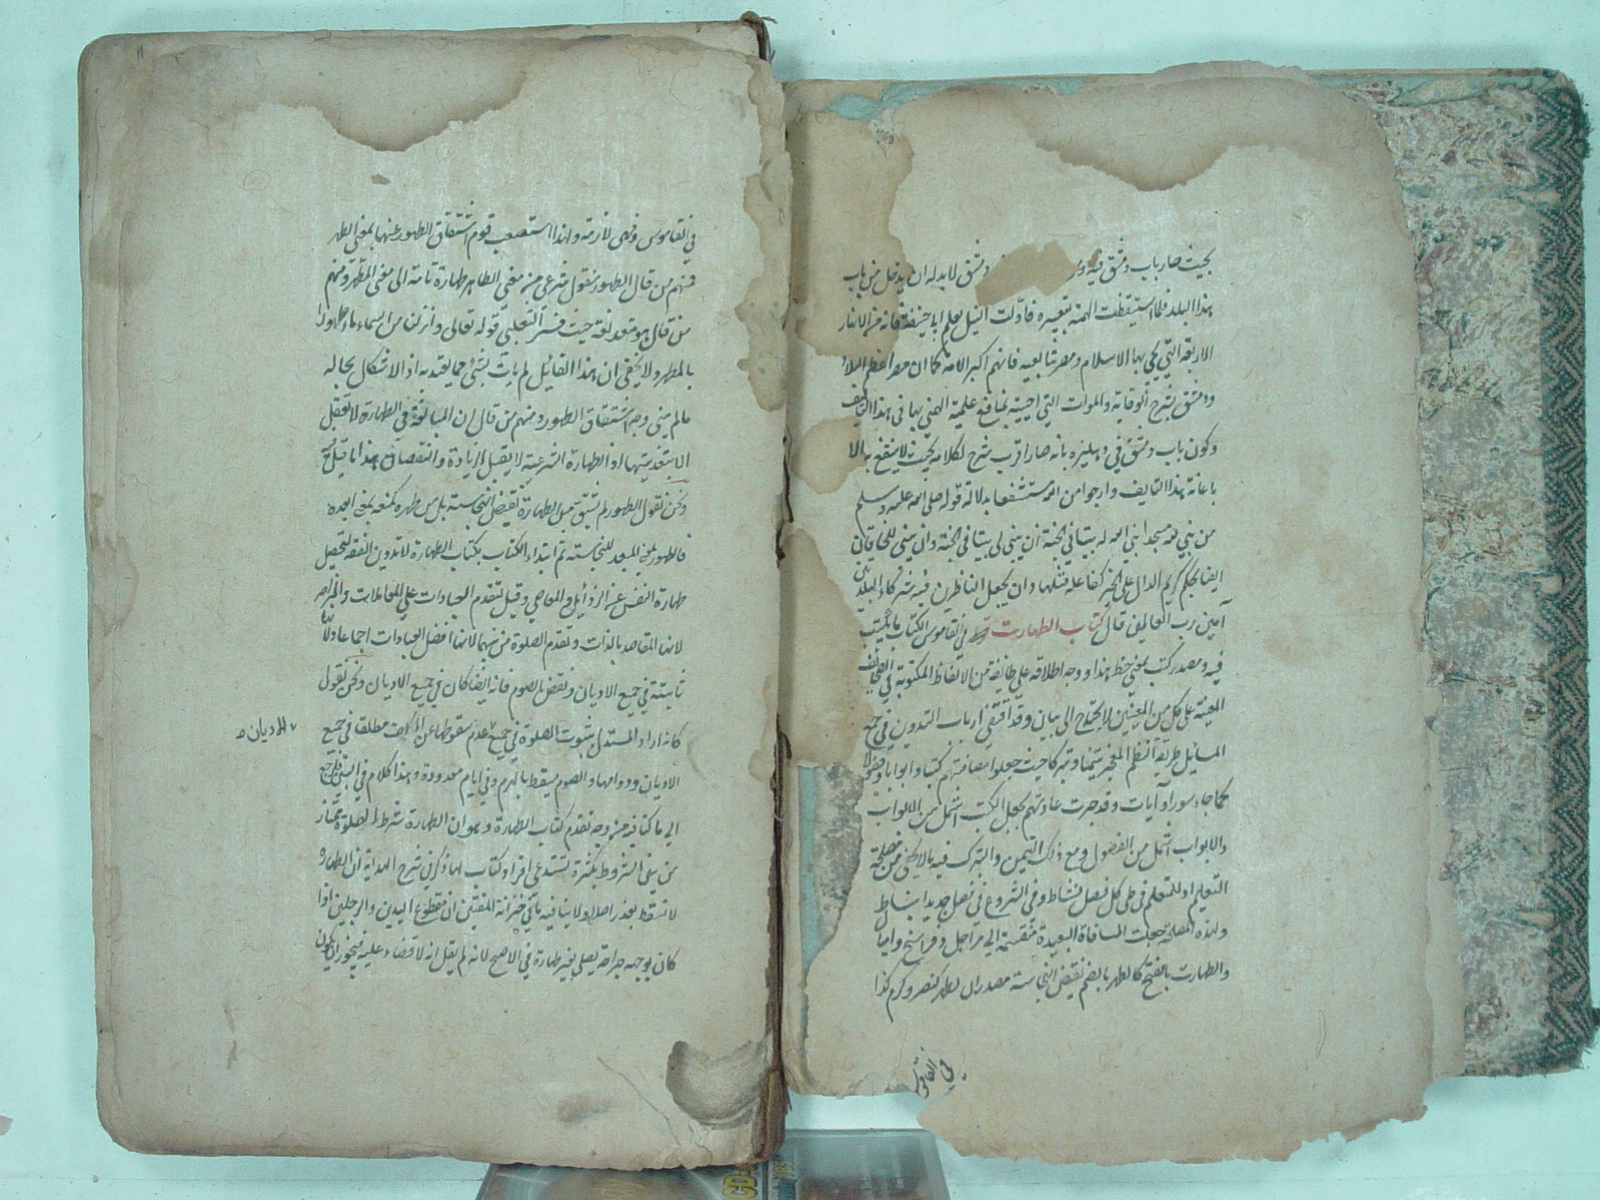 بحيث صار باب دمشق فيه دمشق لا بد له ان يدخل من باب
هذا البلد فلما استيقظت الهمة بتعبيره فاولت النيل بعلم ابا حنيفة فانه من الانهار
الاربعة التي يحيى بها الاسلام ومصر تابعيه فانهم اكبر الامة كما ان مصر اعظم البلاد
ودمشق بشرح الوقاية والموات التي احييته بمنافع علمية الهمني بها في هذا التاليف
وكون باب دمشق في دهليزه بانه صار اقرب شرح لكلامه بحيث لا ينتفع به الا
باعانة هذا التاليف وارجو من الله مستشفعا بدلالة قوله صلى الله عليه وسلم
من بنى لله مسجدا بنى الله له بيتا في الجنة ان يبنى لي بيتا في الجنة وان يبنى للخاقان
ايضا بحكم كريم الدال على الخير كفاعله مثلها وان يجعل الناظرين فيه شركاء البلدين
آمين رب العالمين قال كتاب الطهارت في القاموس الكتاب ما يكتب
فيه ومصدر كتب بمعنى خط هذا ووجه اطلاقه على طائفة من الالفاظ المكتوبة في الصحائف
المعينة على كل من المعنيين لا يحتاج الى بيان وقد اقتفى ارباب التدوين في جمع
المسائل طريقة النظم المعجز تيمنا وتبركا حيث جعلوا مصنفاتهم كتبا وابوابا وفصولا
كما جاء سورا وآيات وقد جرت عادتهم بجعل الكتب اشمل من الابواب
والابواب اشمل من الفصول ومع ذلك التيمن والتبرك فيه ما لا يخفى من مصلحة
التعليم اذ للمتعلم في طى كل فصل نشاط وفي الشروع في فصل جديد انبساط
ولهذه المصلحة جعلت المسافة البعيدة منقسمة الى مراحل وفراسخ واميال
والطهارت بالفتح كالطهر بالضم نقيض النجاسة مصدران لطهر كنصر وكرم كذا
في القاموس
في القاموس وهى لازمة ولهذا استصعب قوم اشتقاق الطهور عنها بمعنى الطهر
فمنهم من قال الطهور منقول شرعى من معنى الطاهر طهارة تامة الى معنى المطهر ومنهم
من قال هو متعد لغة حيث فسر الثعلبي قوله تعالى وانزلنا من السماء ماء طهورا
بالمطهر ولا يخفى ان هذا القائل لم يات بشئ مما يعتد به اذ الاشكال بحاله
مالم يبين وجه اشتقاق الطهور ومنهم من قال ان المبالغة في الطهارة لا تعقل
الا بتعديتها اذ الطهارة الشرعية لا يقبل الزيادة والنقصان هذا ما قيل
ونحن نقول الطهور لم تشتق من الطهارة نقيض النجاسة بل من طهره كمنعه بمعنى ابعده
فالطهور بمعنى المبعد للنجاسة ثم ابتداء الكتاب بكتاب الطهارة لا تدوين الفقه لتحصيل
طهارة النفس عن الرذائل والمعاصي وقيل تتقدم العبادات على المعاملات والمزاجر
لانها المقاصد بالذات وتقدم الصلوة من بينها لانها افضل العبادات اجماعا ولانها
ثابتة في جميع الاديان ونقض بالصوم فانه ايضا كان في جميع الاديان ونحن نقول
كانه اراد المستدل بثبوت الصلوة في جميع عدم سقوطها عن المكلف مطلقا في جميع
الاديان ه
الاديان ودوامها والصوم يسقط بالهرم وفي ايام معدودة وهذا كلام في البين فلنرجع
الى ما كنا فيه من وجه تقدم كتاب الطهارة وهو ان الطهارة شرط الصلوة تمتاز
من بين الشروط بكثرة تستدعى افراد كتاب لها ذكر في شرح الهداية ان الطهارة
لا تسقط بعذر اصلا ولا ينافيه ما في خزانة المفتين ان مقطوع اليدين والرجلين اذا
كان بوجهه جراحة يصلى بغير طهارة في الاصح لانه لم يقل انه لا قضاء عليه فيجوز ان يكون